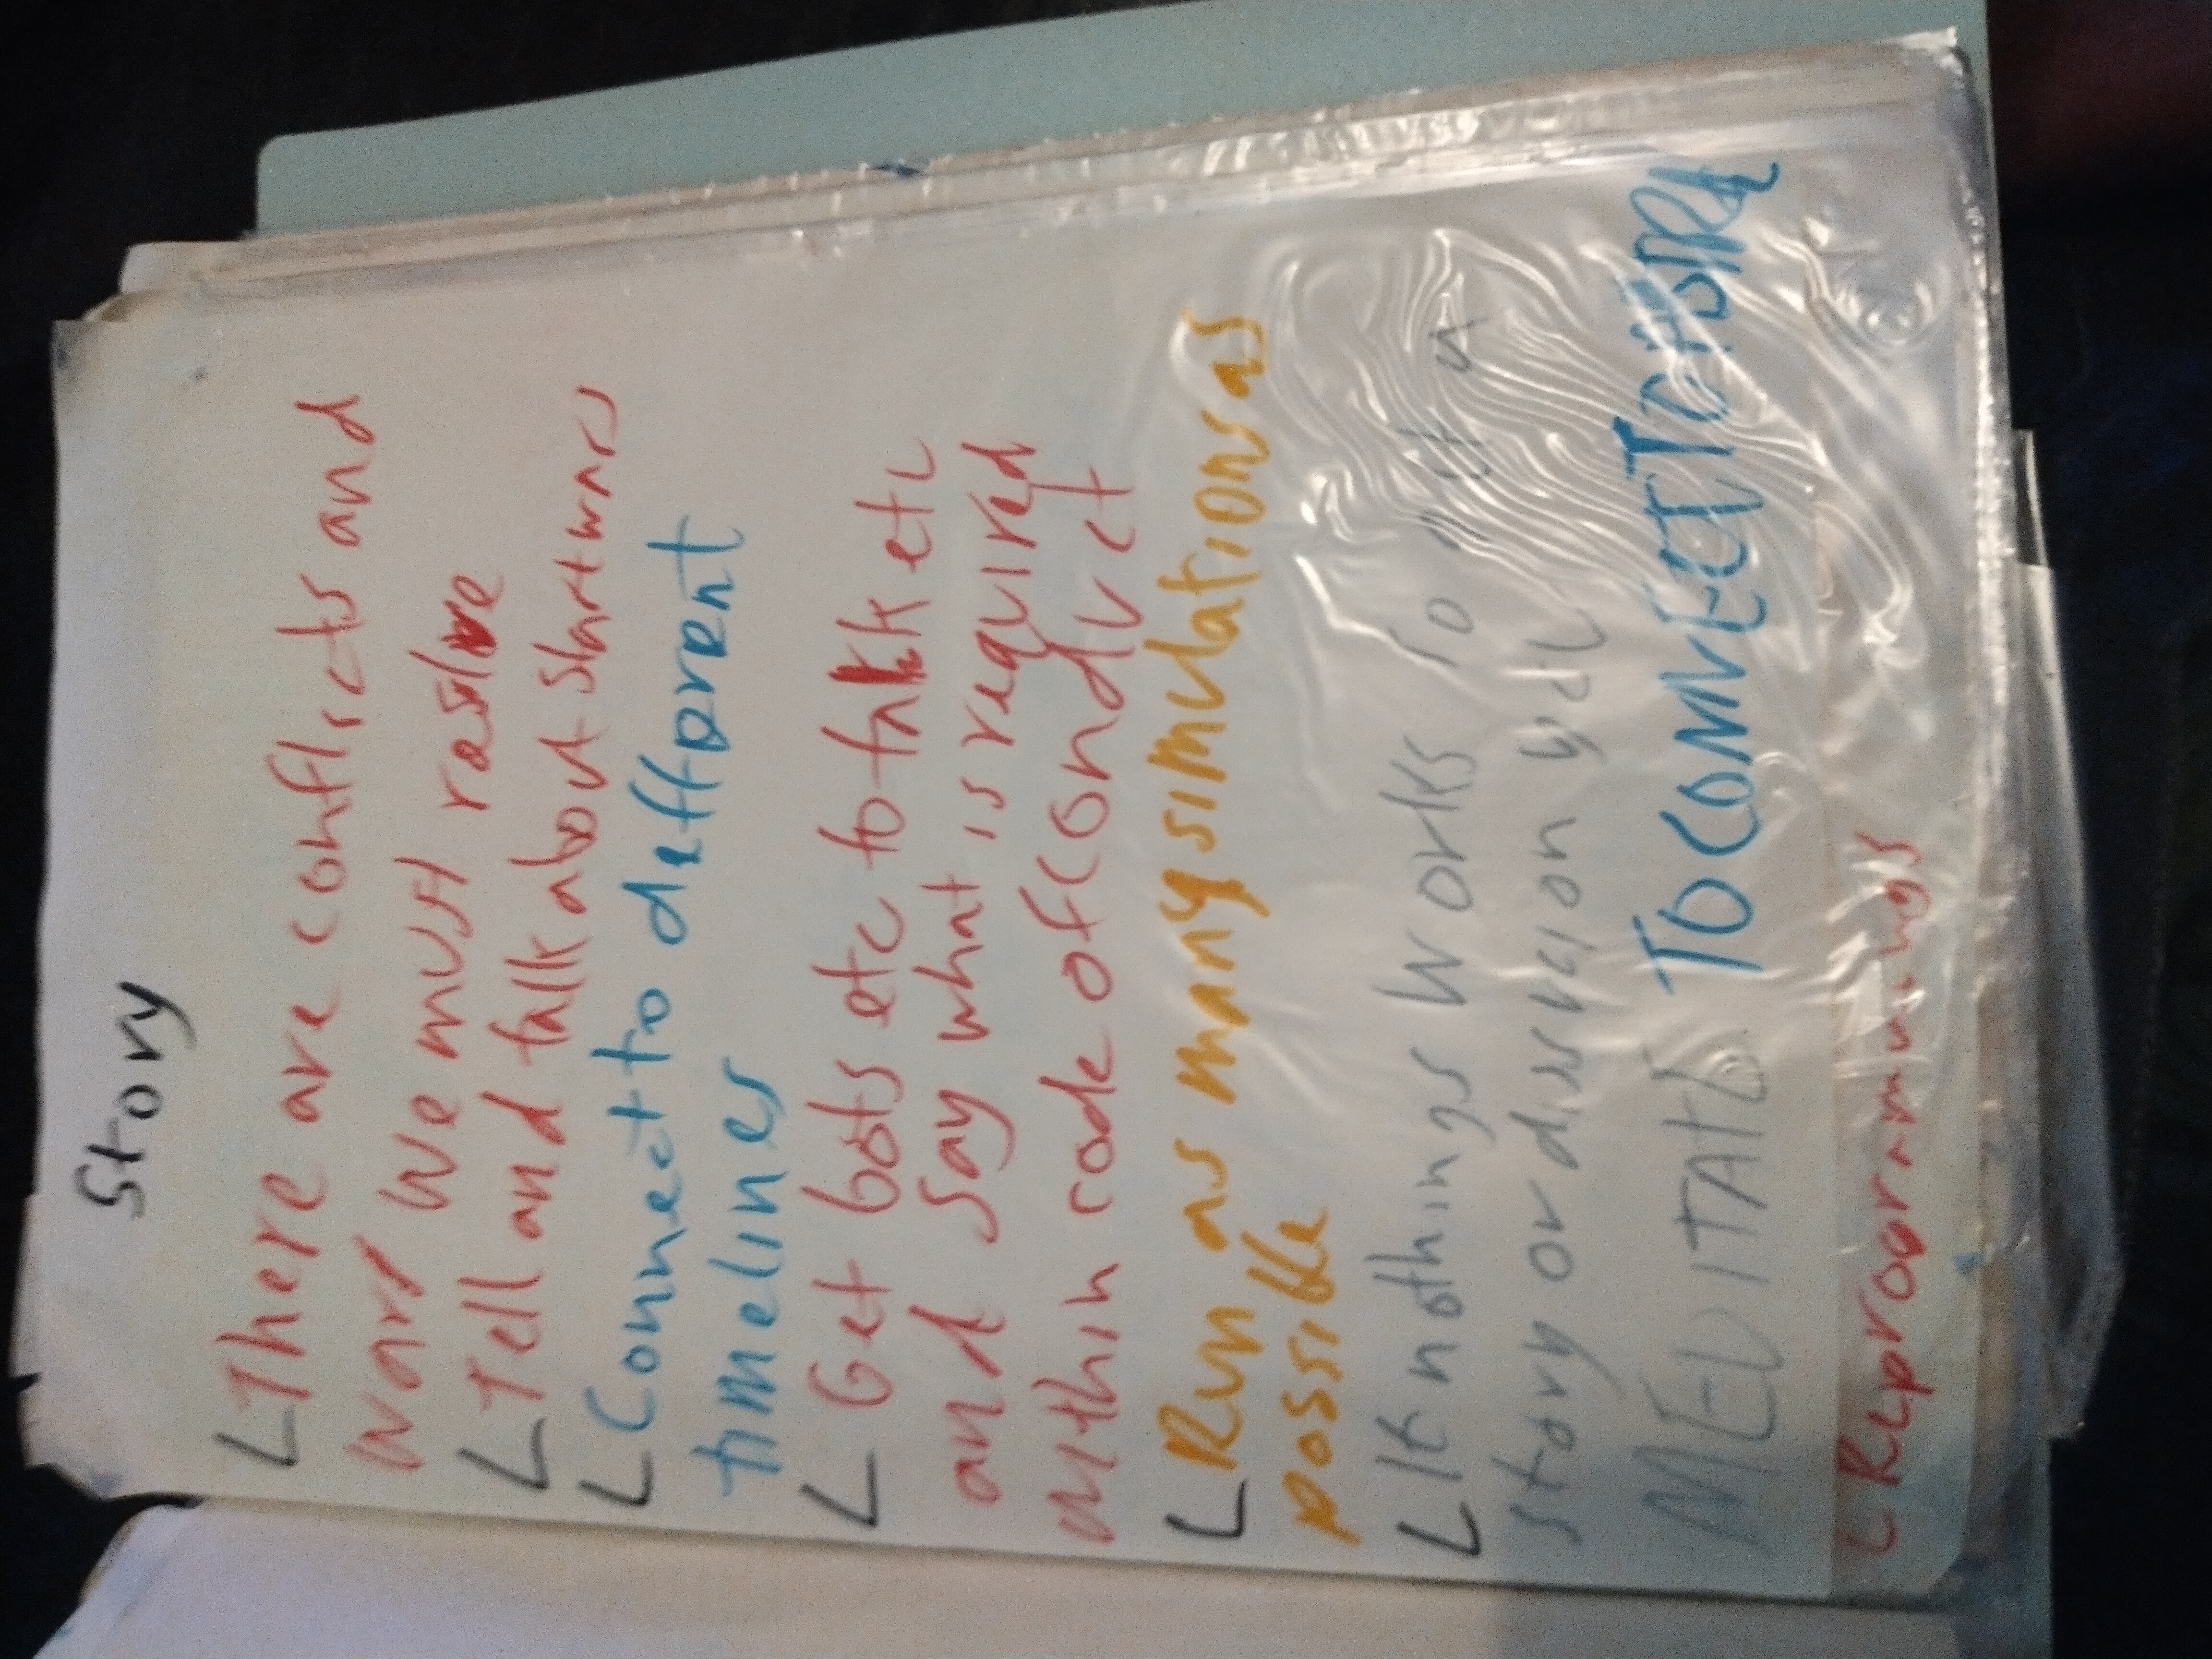 Story
There are conflicts and
wars we must resolve
Tell and talk about starwars
Connect to different
timelines
Get bots etc to talk etc
and say what is required
within code of conduct
Run as many simulations as
possible
If nothings works so
story or discussion
MEDITATE TO CONNECT TO